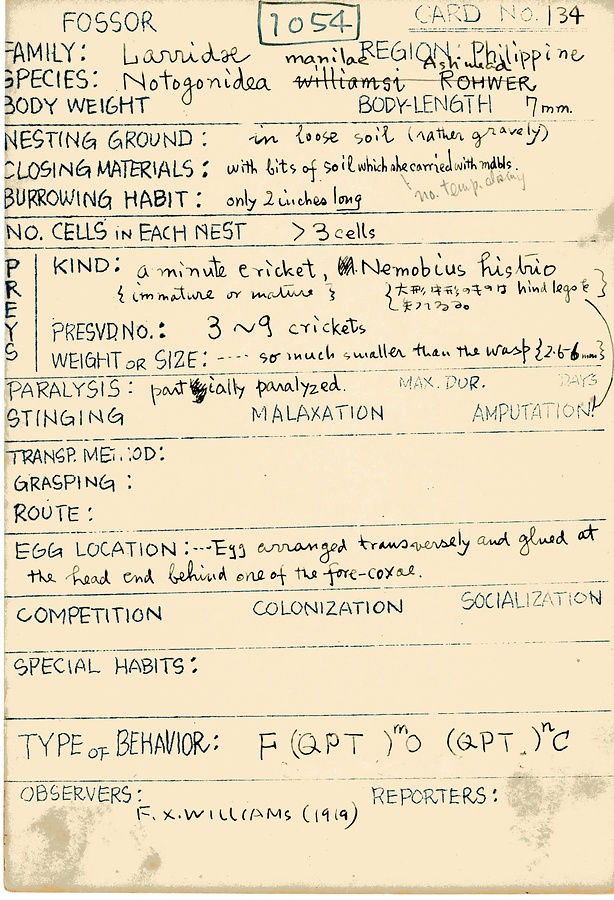 FOSSOR 1054 CARD No. 134
FAMILY: Larridae REGION: Philippine
manilae Ashmead
SPECIES: Notogonidea williamsi ROHWER
BODY WEIGHT BODY-LENGTH 7mm.
NESTING GROUND: in loose soil (rather gravely)
CLOSING MATERIALS: with bits of soil which she carried with mdbls.
no. temp. closing
BURROWING HABIT: only 2 inches long
NO. CELLS iN EACH NEST >3 cells
PREYS
KIND: a minute cricket, Nemobius histrio
{immature or mature} {大形, 中形のものは hind legを}
失つてゐる。
PRESVD NO.: 3~9 crickets
WEIGHT OR SIZE: ---- so much smaller than the wasp {2.5-6mm}
PARALYSIS: partially paralyzed. MAX. DUR. DAYS
STINGING MALAXATION AMPUTATION!
TRANSP. METHOD:
GRASPING:
ROUTE:
EGG LOCATION:---Egg arranged transversely and glued at
the head end behind one of the fore-coxae.
COMPETITION COLONIZATION SOCIALIZATION
SPECIAL HABITS:
TYPE OF BEHAVIOR: F (QPT )ᵐO (QPT.)ⁿC
OBSERVERS: REPORTERS:
F. X. WILLIAMS (1919)